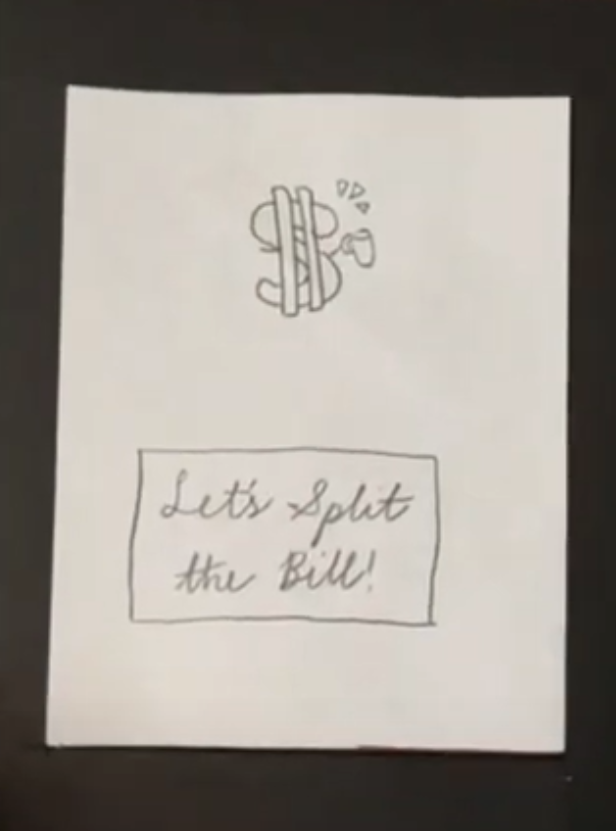 $
Let's Split
the Bill!